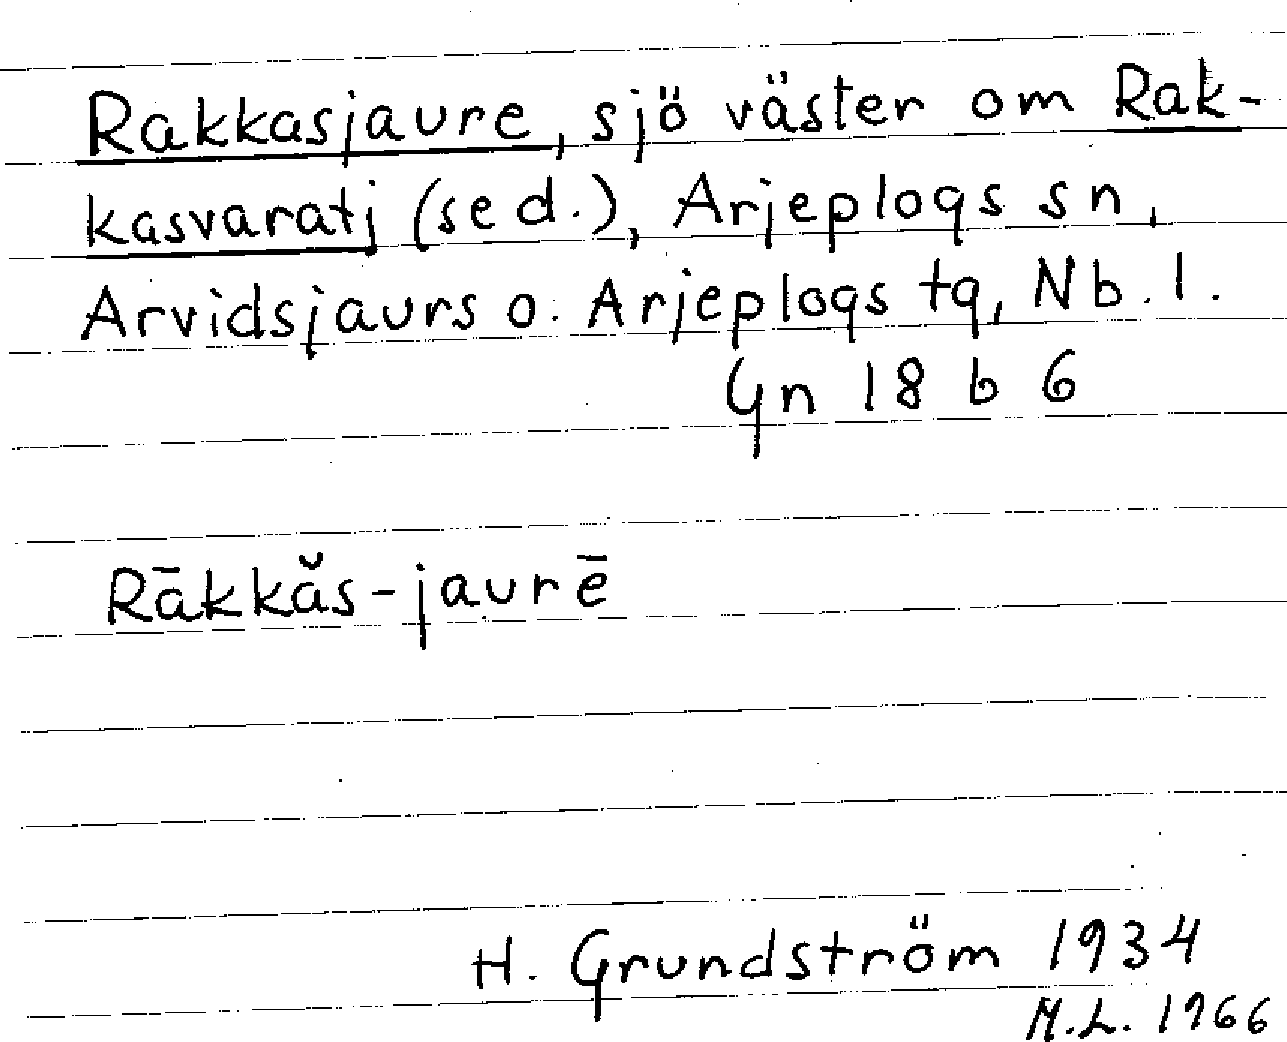 Rakkasjaure, sjö väster om Rak-
kasvaratj (se d.), Arjeplogs sn,
Arvidsjaurs o. Arjeplogs tg, Nb. l.
Gn 18 b 6
Rākkăs-jaurē
H. Grundström 1934
M.L. 1966